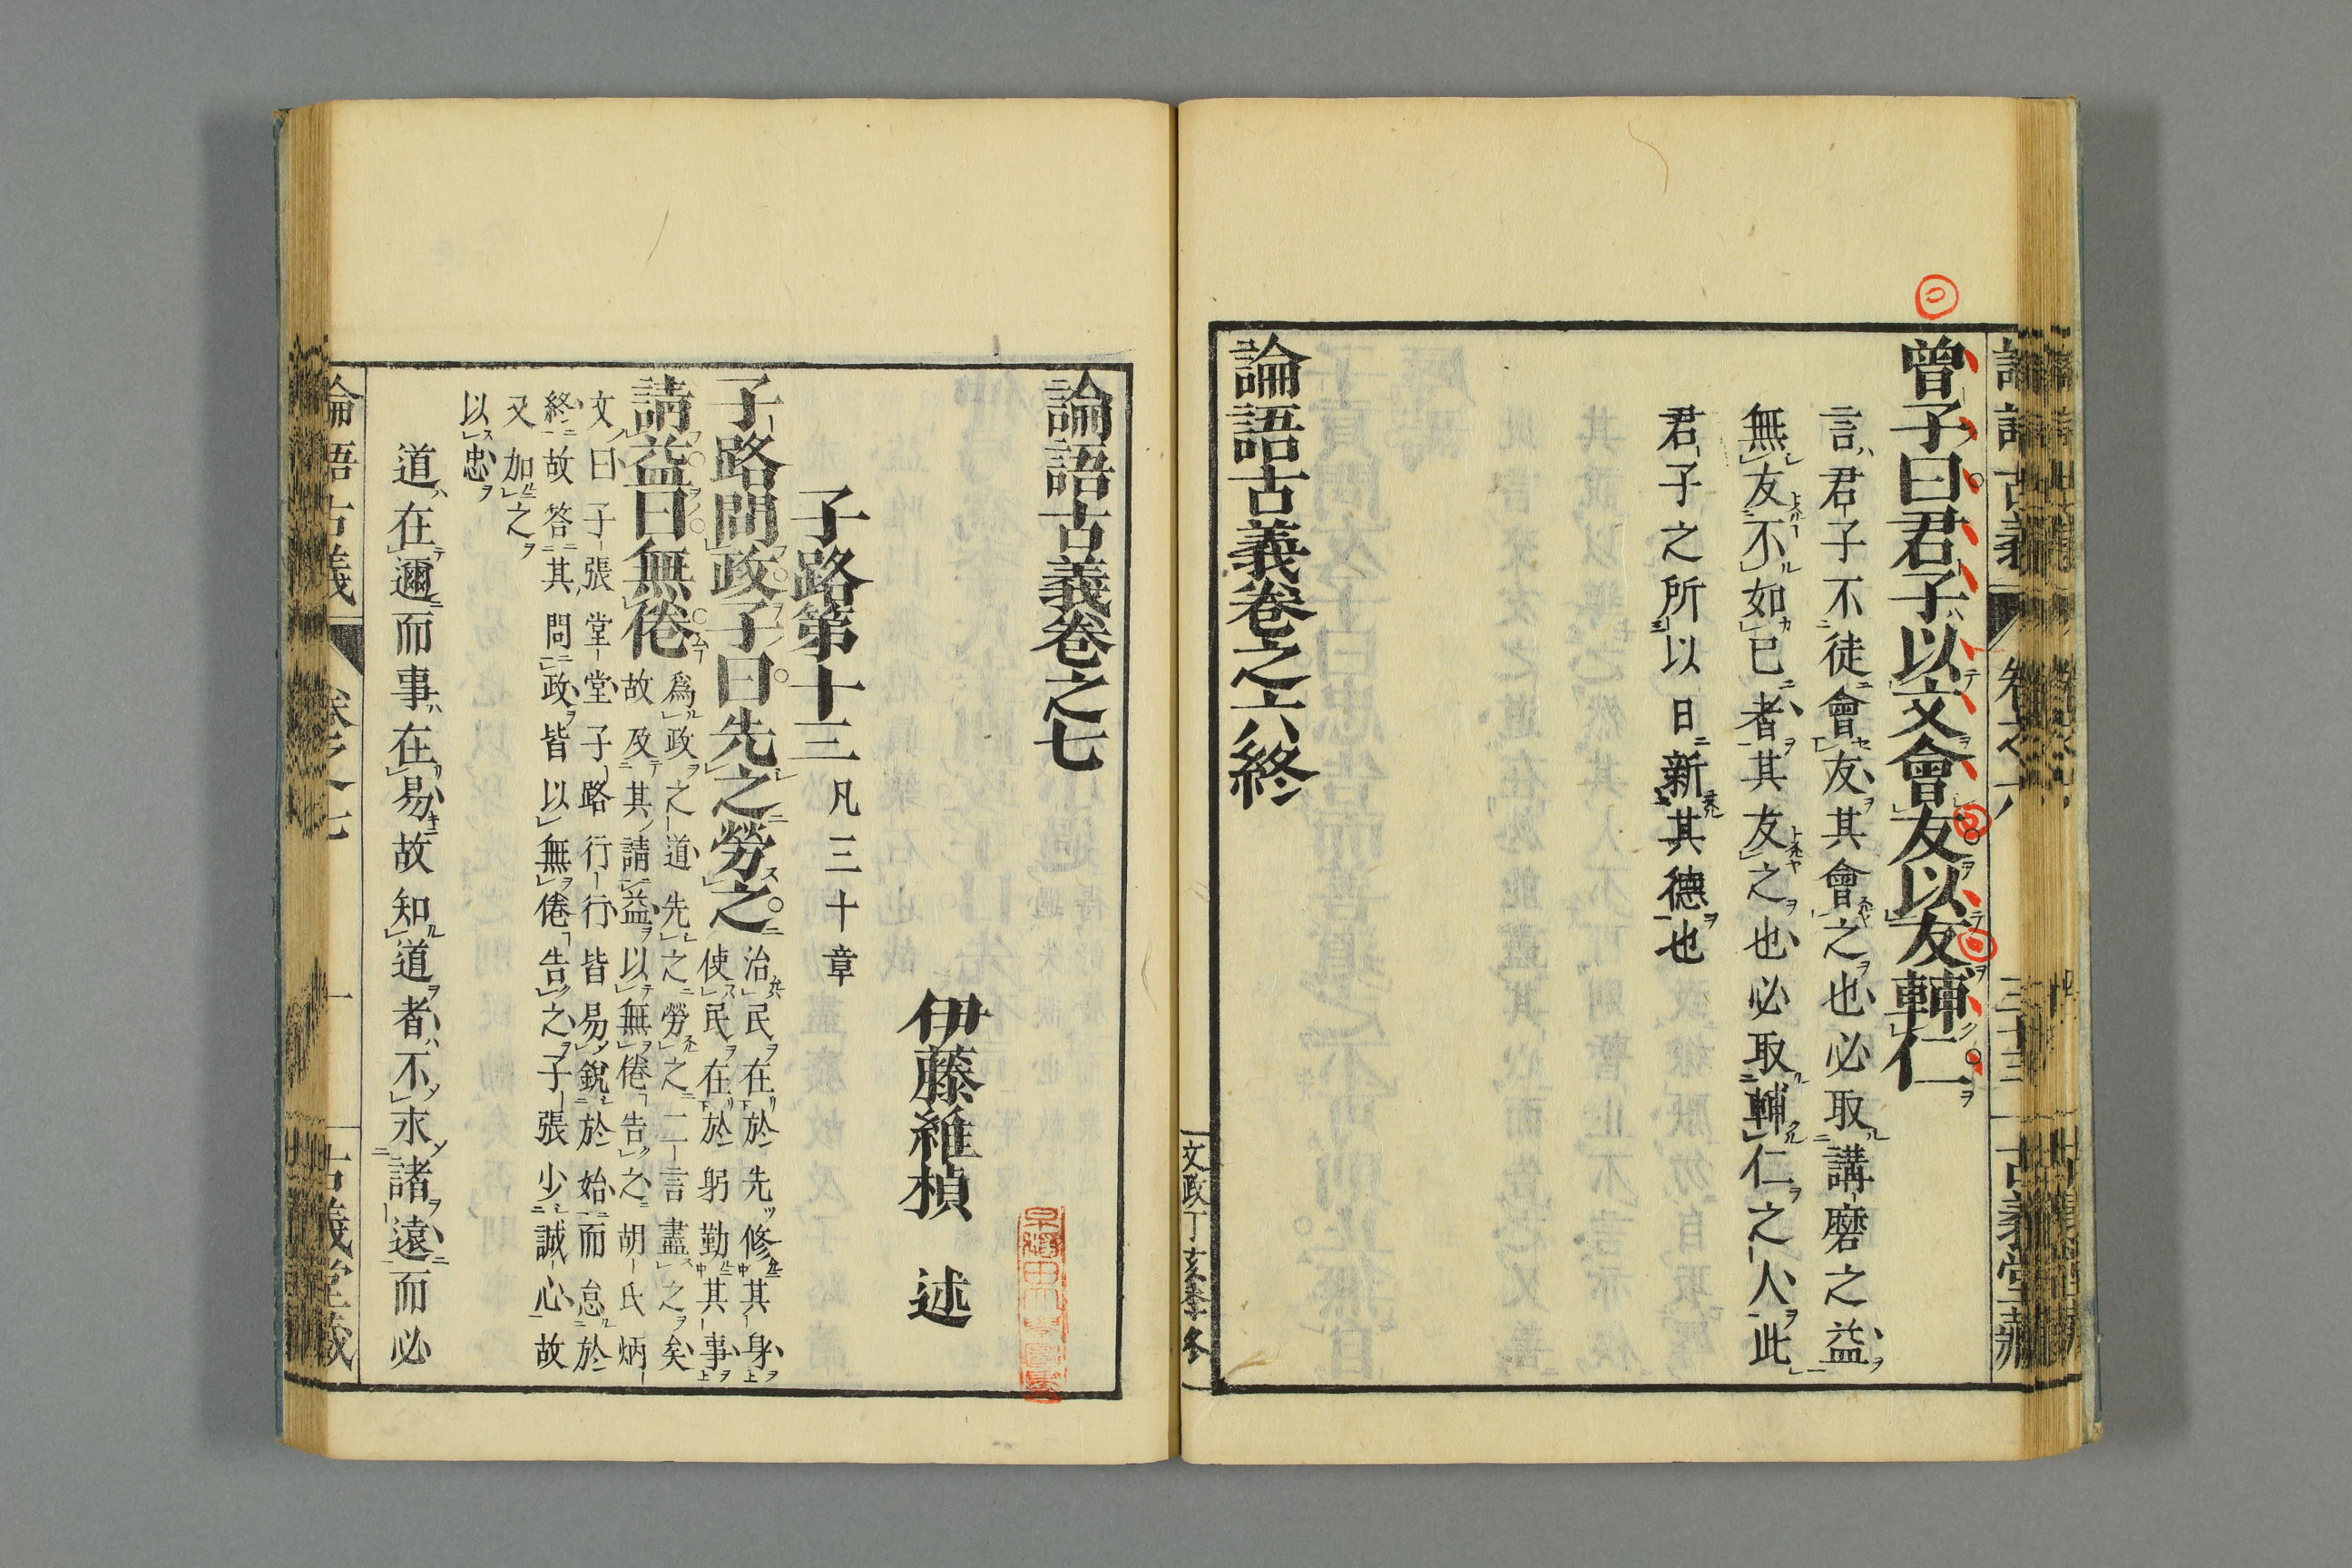 曾子曰君子以文會友以友輔仁
言君子不徒會友其會之也必取講磨之益
無友不如已者其友之也必取輔仁之人此
君子之所以日新其德也
論語古義卷之六終
文政丁亥季冬
論語古義卷之七
伊藤維楨 述
子路第十三 凡三十章
子路問政子曰先之勞之 治民在於先修其身
使民在於躬勤其事
請益曰無倦 爲政之道先之勞之二言盡之矣
故及其請益以無倦告之胡氏炳
文曰子張堂堂子路行行皆易銳於始而怠於
終故答其問政皆以無倦告之子張少誠心故
又加之
以忠
道在邇而事在易故知道者不求諸遠而必
論語古義 卷之七 一 古義堂藏